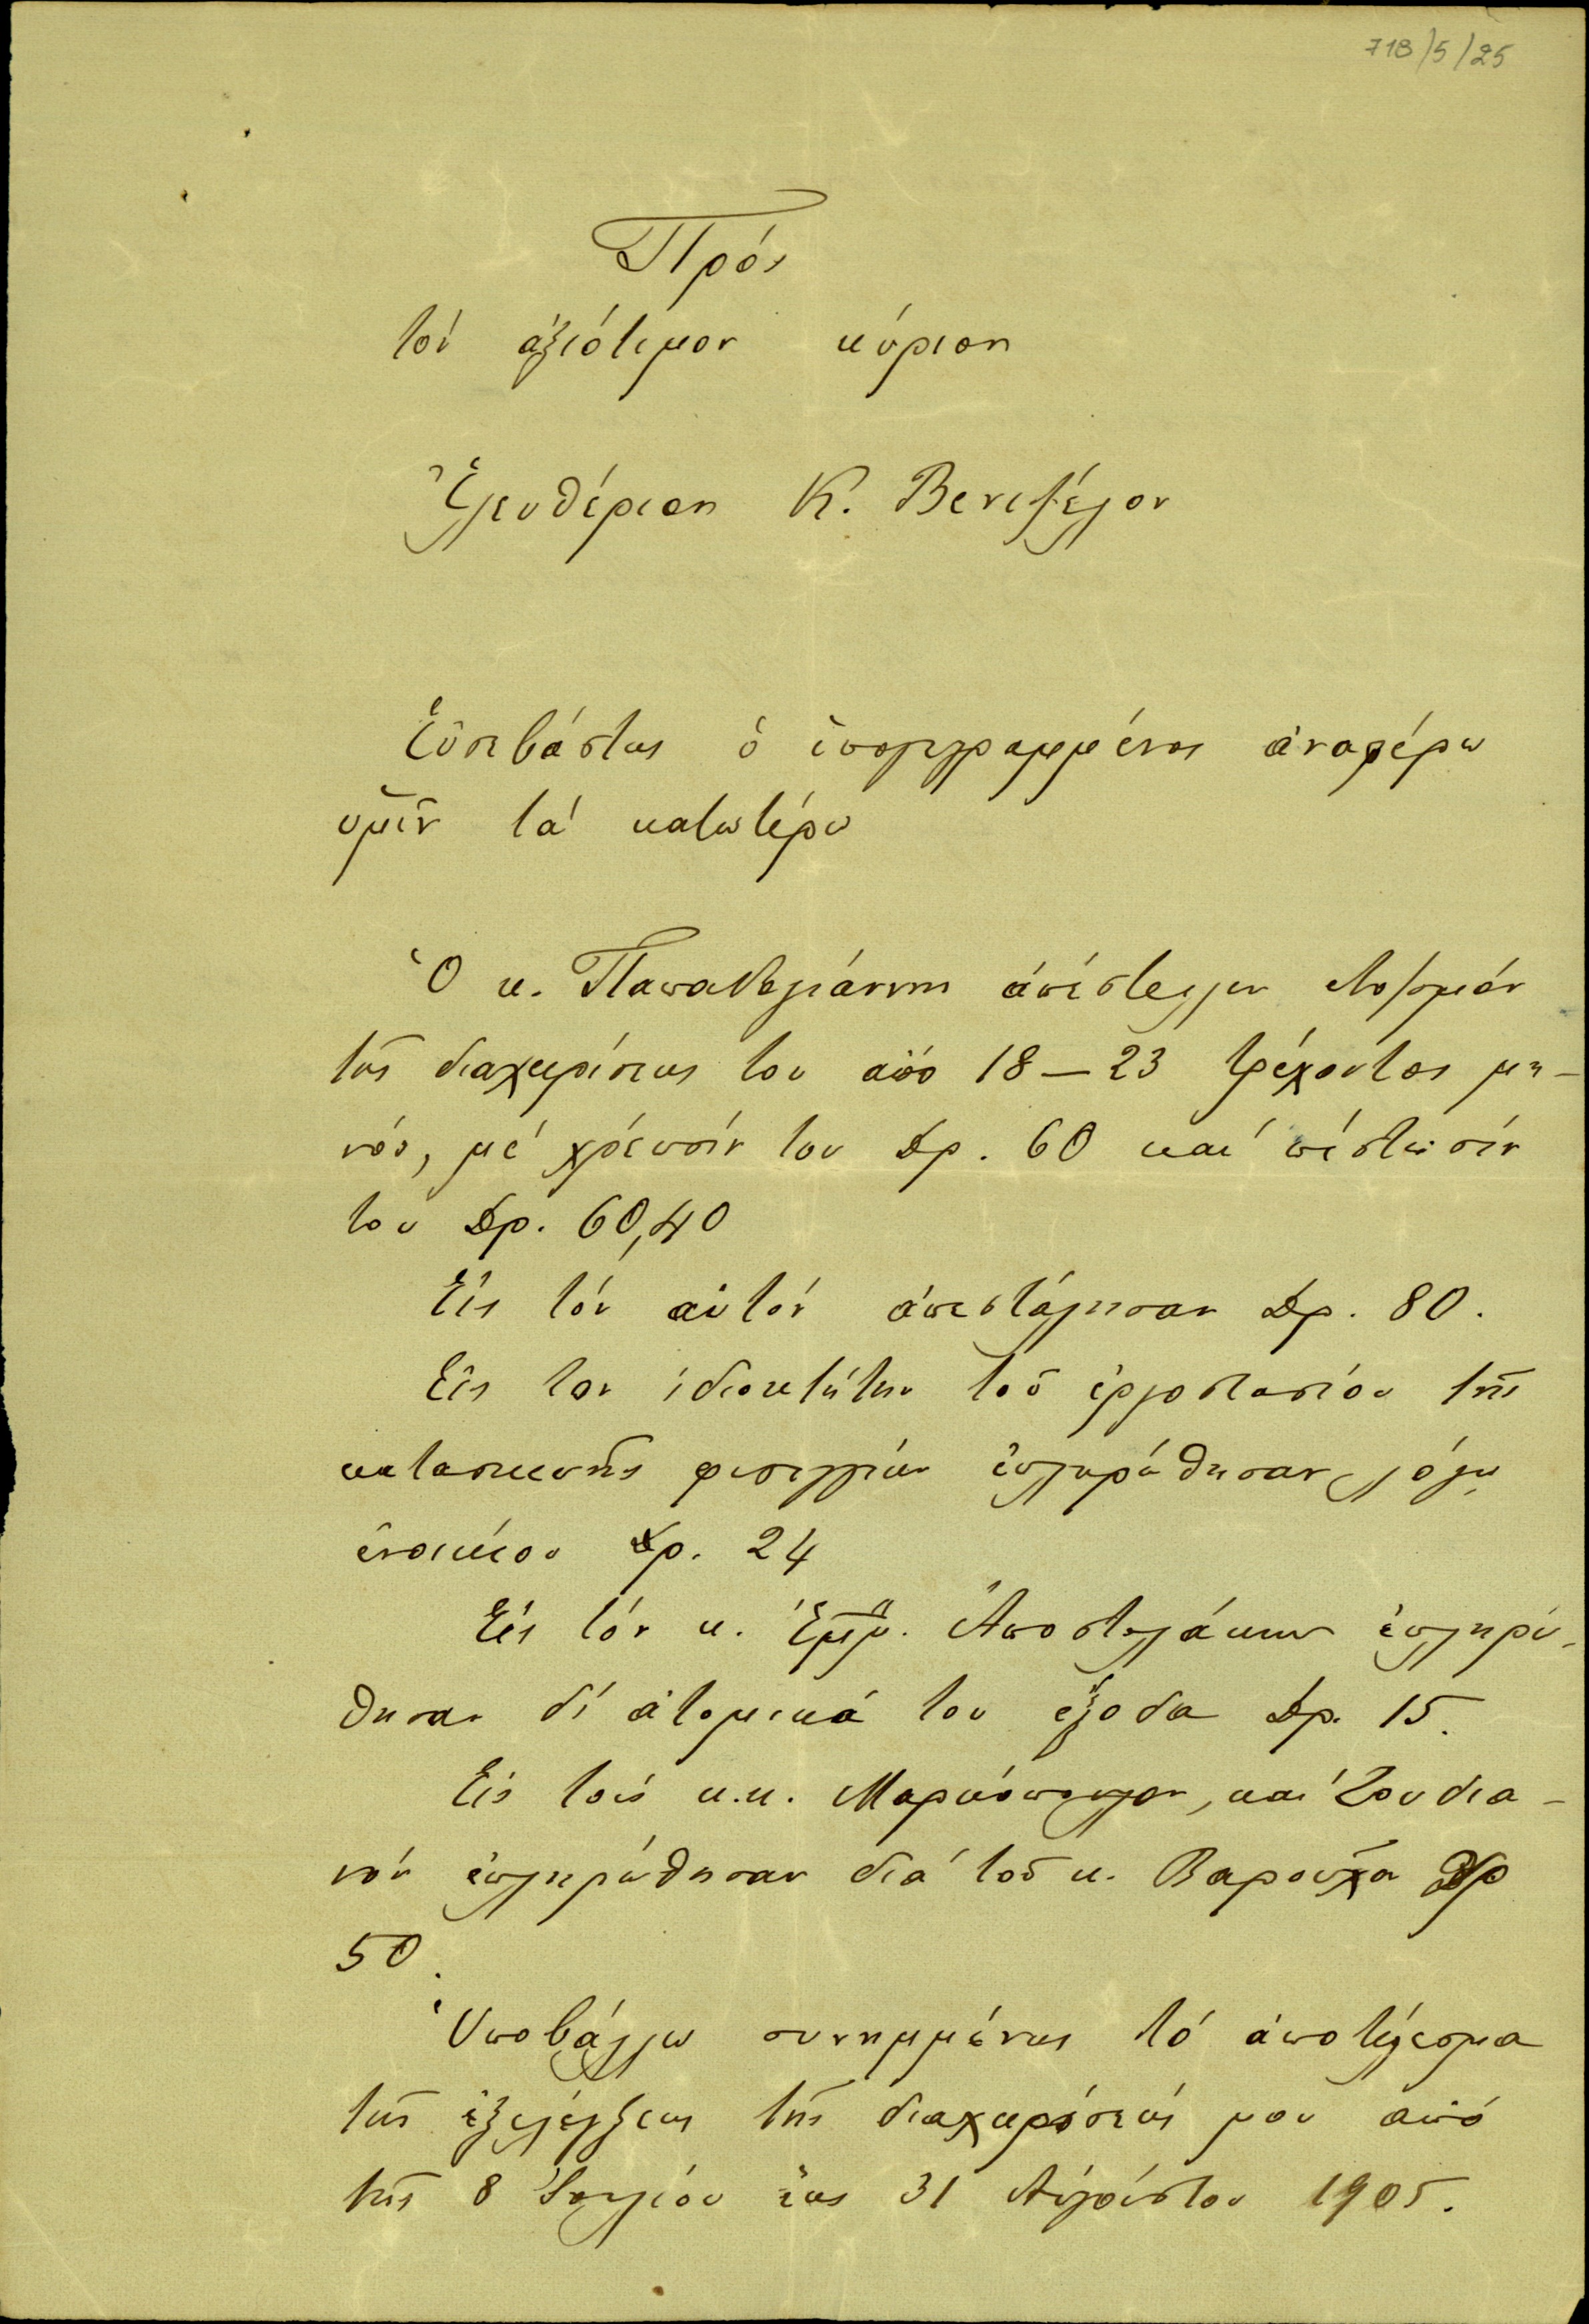 718/5/25
Πρός
τόν ἀξιότιμον κύριον
Ἐλευθέριον Κ. Βενιζέλον
Εὐσεβάστως ὁ ὑπογεγραμμένος ἀναφέρω
ὑμῖν τά κατωτέρω
Ὁ κ. Παπαδογιάννης ἀπέστειλεν λογ/σμόν
τῆς διαχειρίσεως του ἀπό 18 – 23 τρέχοντος μη-
νός, μέ χρέωσίν του Δρ. 60 καί πίστωσίν
του Δρ. 60,40
Εἰς τόν αὐτόν ἀπεστάλησαν Δρ. 80.
Εἰς τον ἰδιοκτήτην τοῦ ἐργοστασίου τῆς
κατασκευῆς φυσιγγίων ἐπληρώθησαν λόγῳ
ἐνοικίου Δρ. 24
Εἰς τόν κ. Ἐμμ. Ἀποστολάκην ἐπληρώ-
θησαν δι' ἀτομικά του ἔξοδα Δρ. 15.
Εἰς τούς κ.κ. Μαρκόπουλον, καί Ζουδια-
νόν ἐπληρώθησαν διά τοῦ κ. Βαρούχα Δρ
50.
Ὑποβάλλω συνημμένως τό ἀποτέλεσμα
τῆς ἐξελέγξεως τῆς διαχειρίσεώς μου ἀπό
τῆς 8 Ἰουλίου ἕως 31 Αὐγούστου 1905.